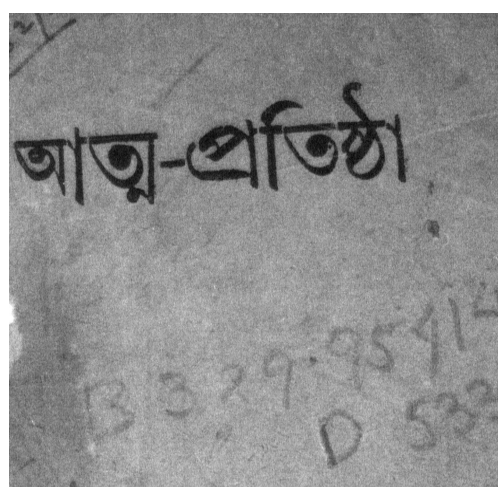 আত্ম-প্রতিষ্ঠা
B 329.95414
D 533